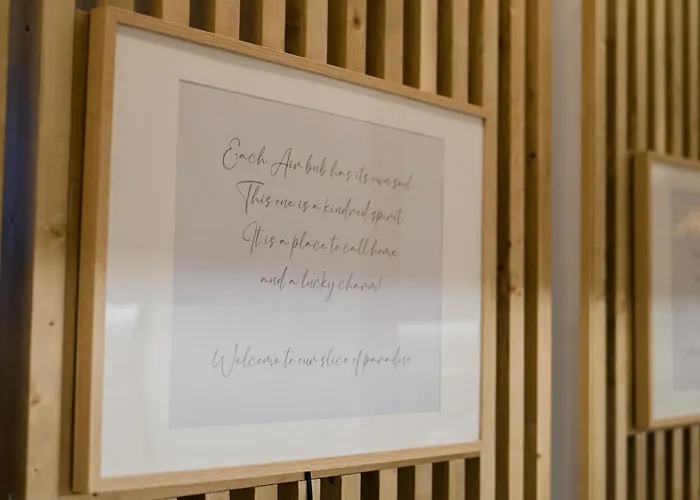 Each Air bnb has its own soul
This one is a kindred spirit
It is a place to call home
and a lucky charm!
Welcome to our slice of paradise